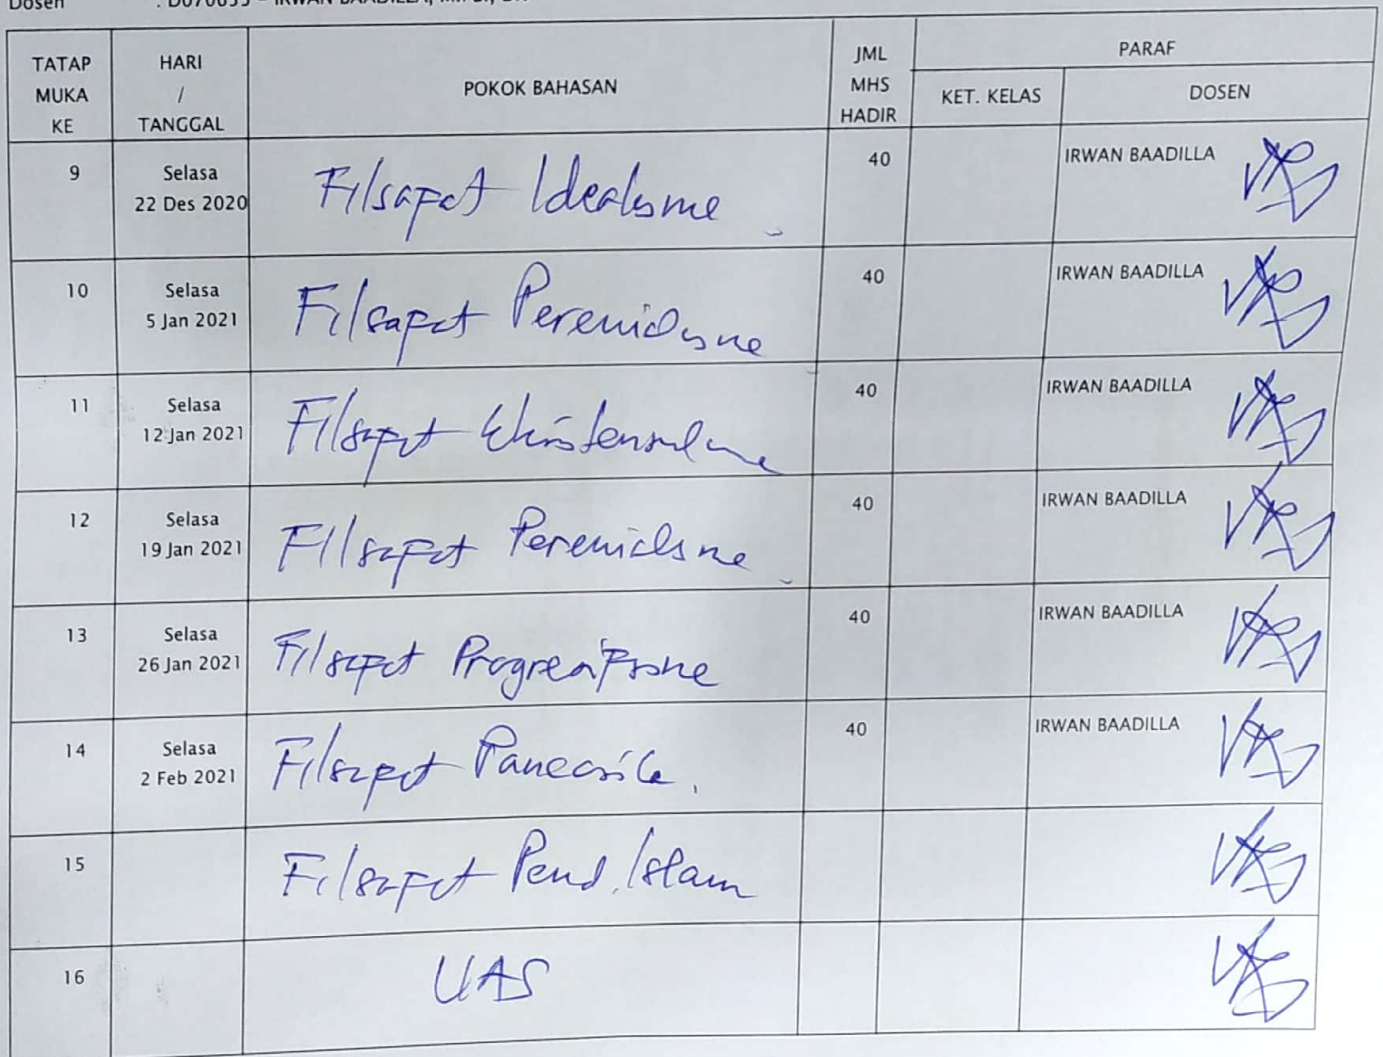 Dosen : D070635 - IRWAN BAADILLA, M.Pd.,
TATAP MUKA KE HARI / TANGGAL POKOK BAHASAN JML MHS HADIR PARAF
KET. KELAS DOSEN
9 Selasa 22 Des 2020 Filsafat Idealisme 40 IRWAN BAADILLA
10 Selasa 5 Jan 2021 Filsafat Perenialisme 40 IRWAN BAADILLA
11 Selasa 12 Jan 2021 Filsafat Ekistensialisme 40 IRWAN BAADILLA
12 Selasa 19 Jan 2021 Filsafat Perenialisme 40 IRWAN BAADILLA
13 Selasa 26 Jan 2021 Filsafat Progresifisme 40 IRWAN BAADILLA
14 Selasa 2 Feb 2021 Filsafat Pancasila. 40 IRWAN BAADILLA
15 Filsafat Pend. Islam
16 UAS